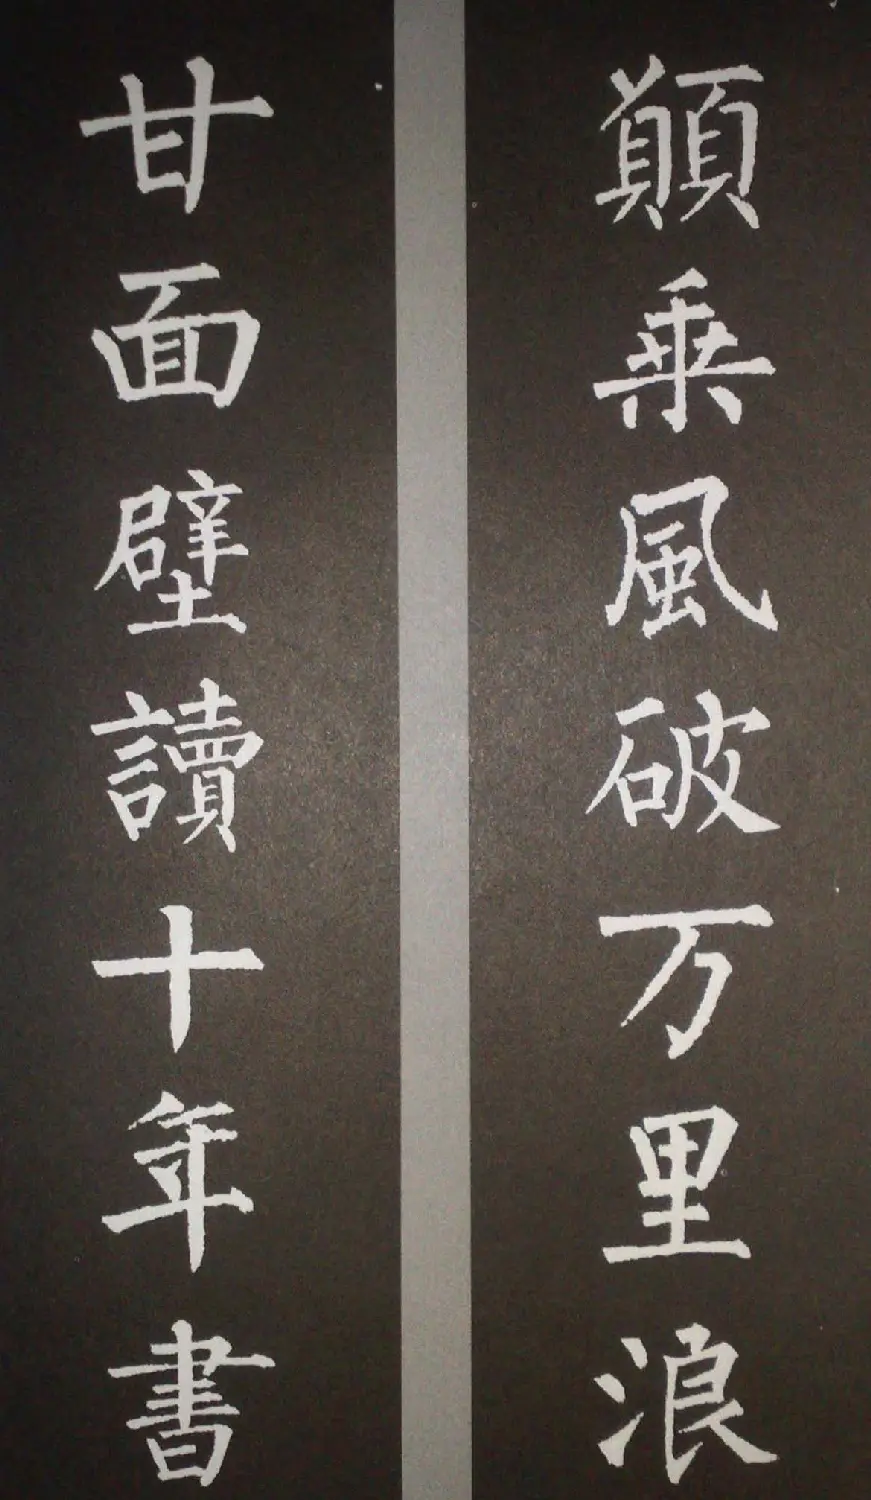 顛乘風破万里浪
甘面壁讀十年書